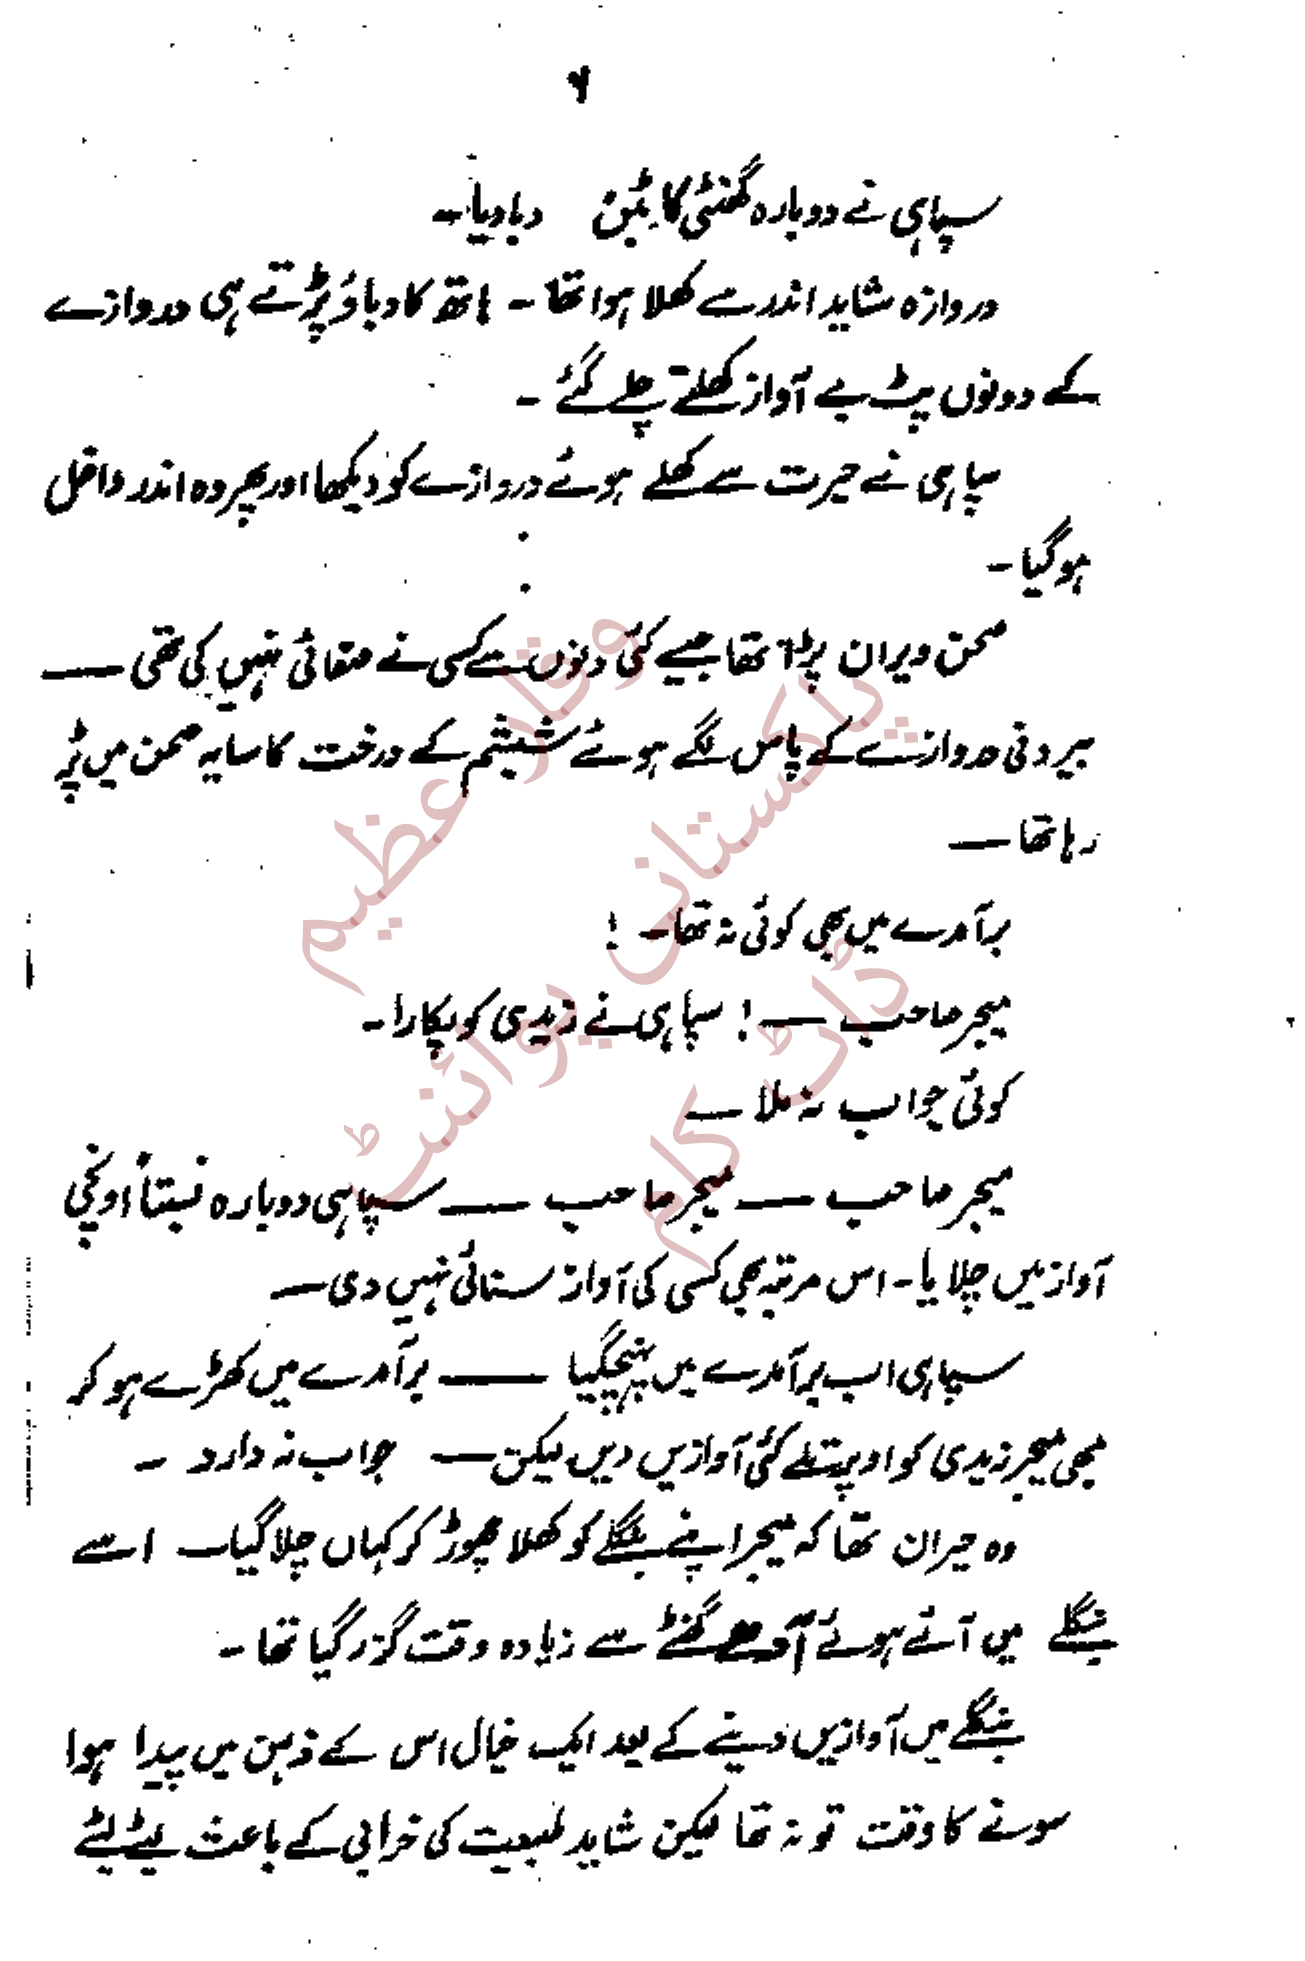 ۶
سپاہی نے دوبارہ گھنٹی کا بٹن دبا دیا۔
دروازہ شاید اندر سے کھلا ہوا تھا۔ ہاتھ کا دباؤ پڑتے ہی دروازے
کے دونوں پٹ بے آواز کھلتے چلے گئے۔
سپاہی نے حیرت سے کھلے ہوئے دروازے کو دیکھا اور پھر وہ اندر داخل
ہو گیا۔
صحن ویران پڑا تھا جیسے کئی دنوں سے کسی نے صفائی نہیں کی تھی —
بیرونی دروازے کے پاس لگے ہوئے شیشم کے درخت کا سایہ صحن میں پڑ
رہا تھا —
برآمدے میں بھی کوئی نہ تھا۔ !
میجر صاحب — ! سپاہی نے زیدی کو پکارا۔
کوئی جواب نہ ملا —
میجر صاحب — میجر صاحب — سپاہی دوبارہ نسبتاً اونچی
آواز میں چلایا۔ اس مرتبہ بھی کسی کی آواز سنائی نہیں دی —
سپاہی اب برآمدے میں پہنچ گیا — برآمدے میں کھڑے ہو کر
بھی میجر زیدی کو اوپر تلے کئی آوازیں دیں لیکن — جواب ندارد ۔
وہ حیران تھا کہ میجر اپنے بنگلے کو کھلا چھوڑ کر کہاں چلا گیا۔ اسے
بنگلے میں آئے ہوئے آدھے گھنٹے سے زیادہ وقت گزر گیا تھا۔
بنگلے میں آوازیں دینے کے بعد ایک خیال اس کے ذہن میں پیدا ہوا
سونے کا وقت تو نہ تھا لیکن شاید طبیعت کی خرابی کے باعث لیٹے لیٹے
وقار عظیم
پاکستانی پوائنٹ
ڈاٹ کام